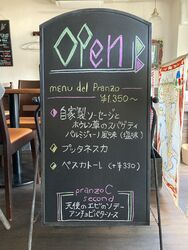 OPEN
menu del Pranzo
¥1,350〜
自家製ソーセージと
ホウレン草のスパゲティ
パルミジャーノ風味(塩味)
プッタネスカ
ペスカトーレ (+¥330)
pranzo C
second
天使のエビのソテー
アンチョビバターソース